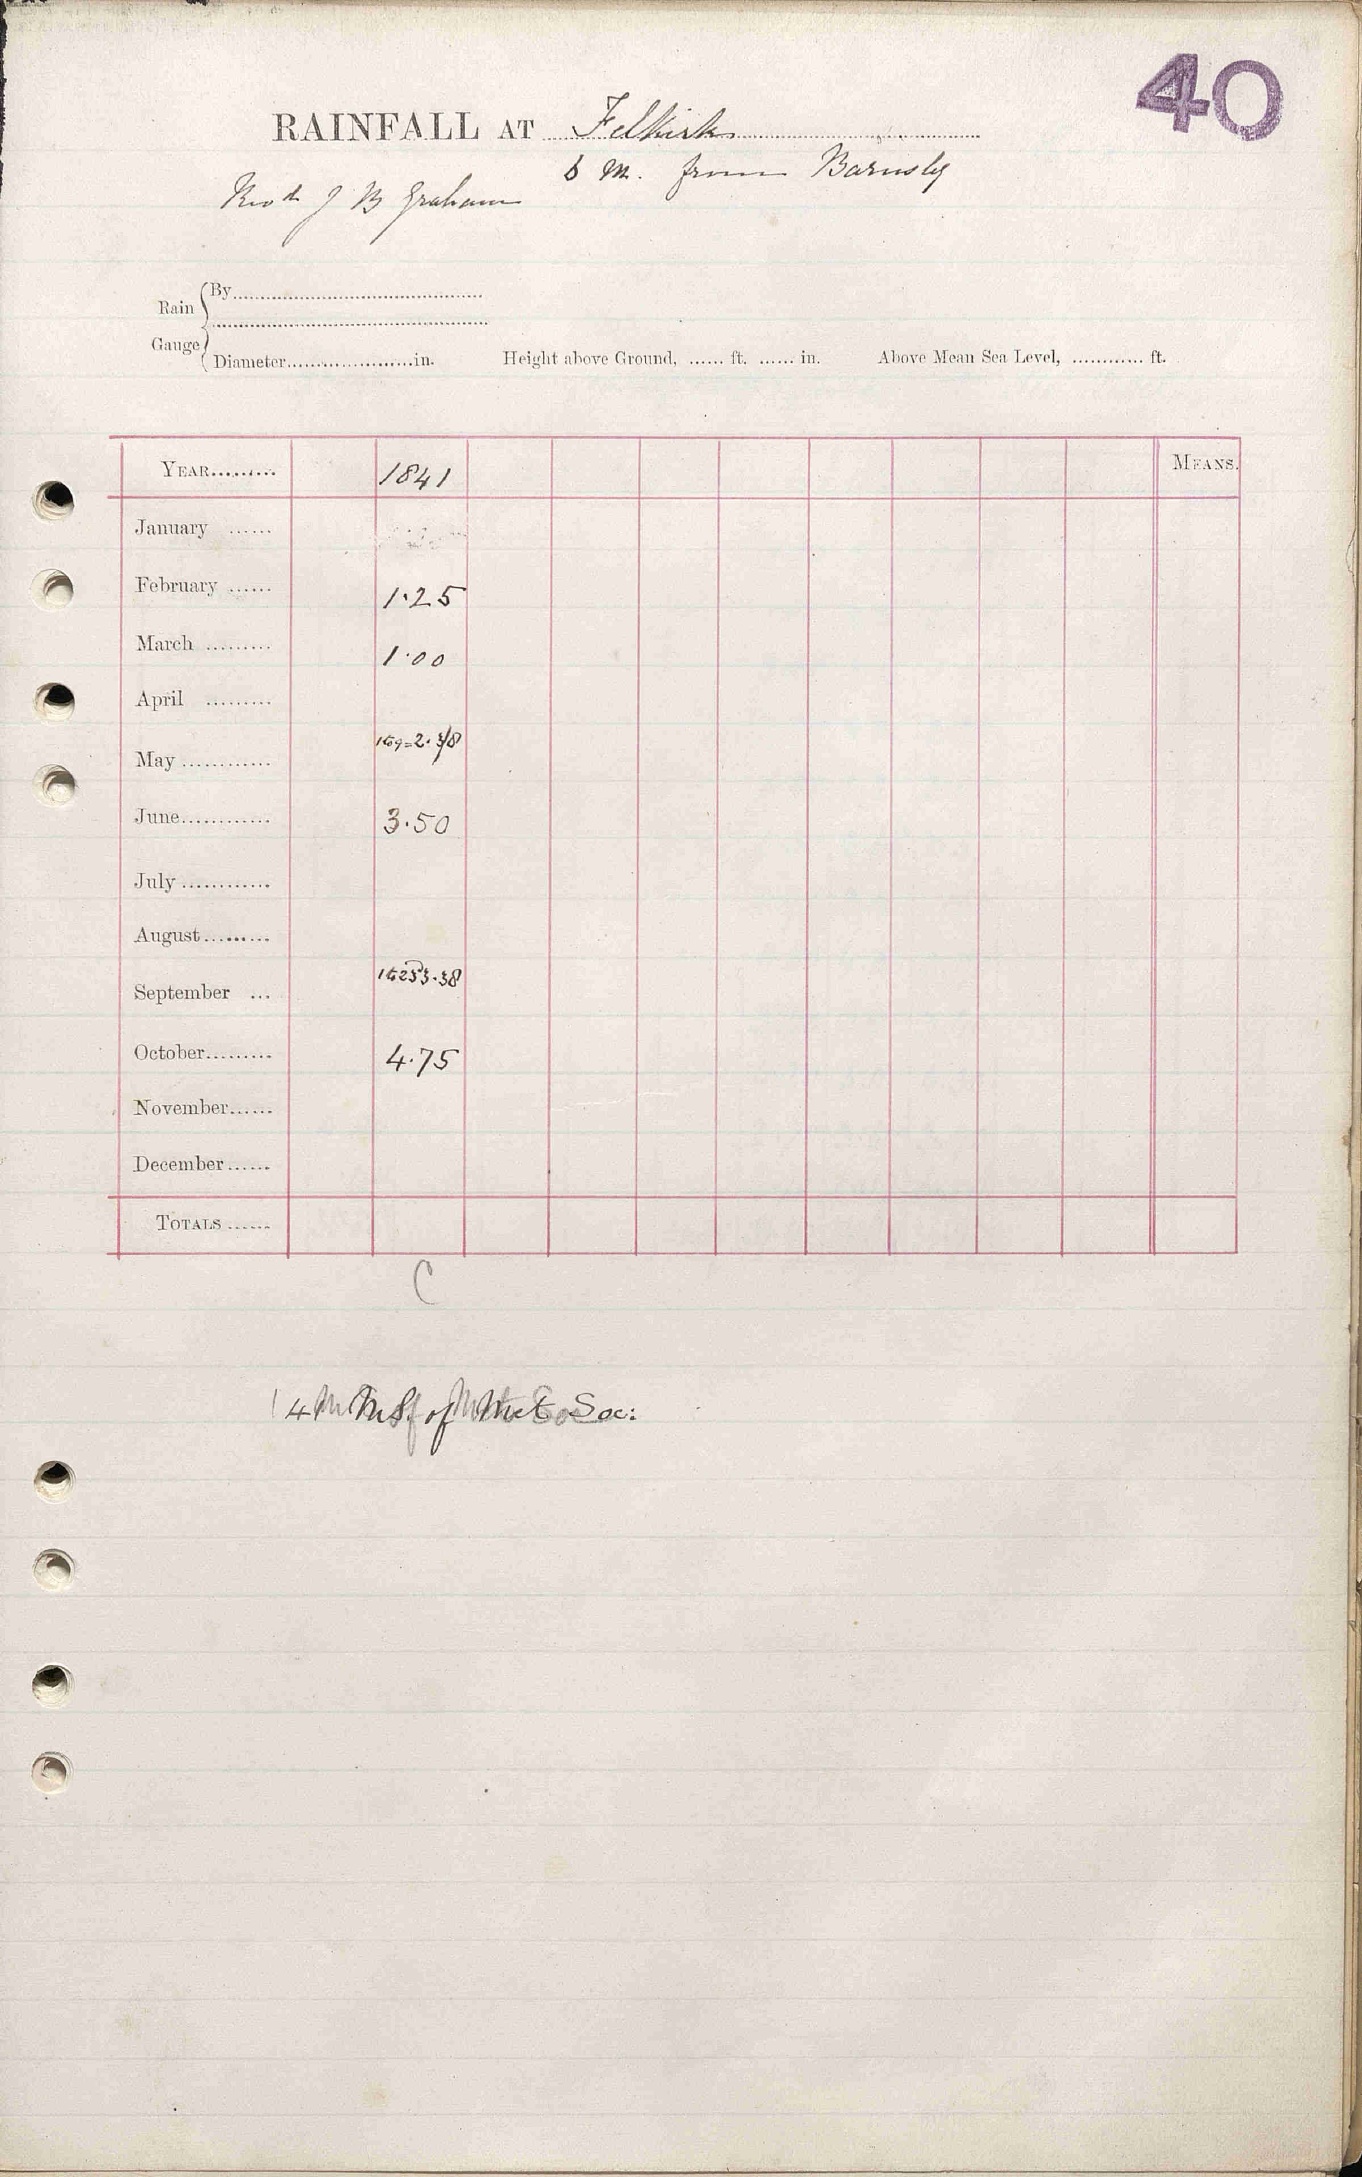 40
RAINFALL AT Felkirk
6 m. from Barnsley
Revd J B Graham
Rain Gauge { By
Diameter in. Height above Ground, ft. in. Above Mean Sea Level, ft.
YEAR 1841 MEANS.
January
February 1.25
March 1.00
April
May
June 3.50
July
August
September 3.38
October 4.75
November
December
TOTALS
C
of Met Soc: